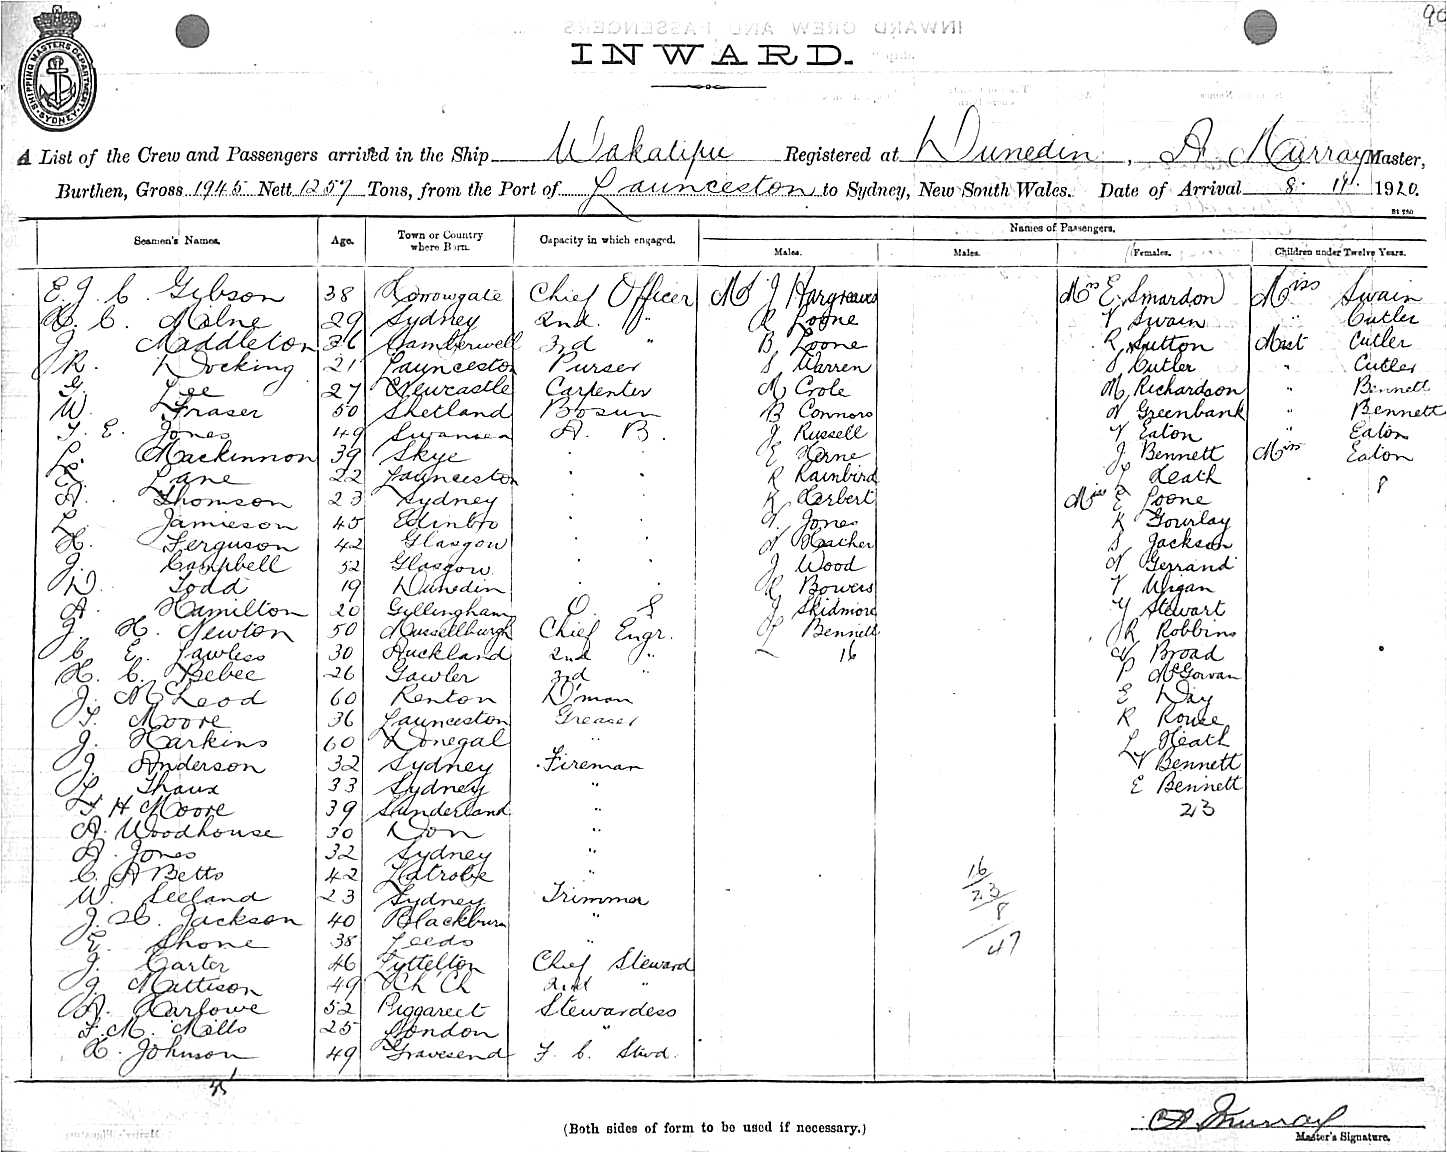 90
SHIPPING MASTERS DEPARTMENT SYDNEY
INWARD.
A List of the Crew and Passengers arrived in the Ship Wakatipu Registered at Dunedin, A Murray Master,
Burthen, Gross 1945 Nett 1257 Tons, from the Port of Launceston to Sydney, New South Wales. Date of Arrival 8. 11. 1920.
Seamen's Names. Age. Town or Country where Born. Capacity in which engaged. Names of Passengers.
Males. Males. Females. Children under Twelve Years.
E. J. C. Gibson 38 Chief Officer Mr J Hargreaves Mrs E. Smardon Miss Swain
H. C. Milne 29 Sydney 2nd. " R Loone V Swain " Cutler
J. Middleton 36 Camberwell 3rd " B Loone R Sutton Mast Cutler
R. Docking 21 Launceston Purser S Warren S Cutler " Cutler
G. Lee 27 Newcastle Carpenter M Crole M Richardson " Bennett
W. Fraser 50 Shetland Bosun B Connors N Greenbank " Bennett
T. E. Jones 49 Swansea A. B. J Russell V Eaton " Eaton
L. Mackinnon 39 Skye E Horne J Bennett Miss Eaton
Lane 22 Launceston R Rainbird L Heath 8
A. Thomson 23 Sydney R Herbert Miss E Loone
L. Jamieson 45 Edinbro Jones R Gourlay
H. Ferguson 42 Glasgow Hather S Jackson
J. Campbell 52 Glasgow J Wood Gerrand
D. Todd 19 Dunedin R Bowers V Wigan
A. Hamilton 20 Gillingham O. S J Skidmore Stewart
J. H. Newton 50 Mussellburgh Chief Engr. Bennett R Robbins
C. E. Lawless 30 Auckland 2nd " 16 Broad
H. C. Bebee 26 Gawler 3rd " P McGowan
J. McLeod 60 Renton D'man E Day
T. Moore 36 Launceston Greaser R Rouse
J. Harkins 60 Donegal " L Heath
J. Anderson 32 Sydney Fireman V Bennett
L. Thaux 33 Sydney " E Bennett
T H Moore 39 Sunderland " 23
A. Woodhouse 30 Don "
A. Jones 32 Sydney "
C. A Betts 42 Latrobe " 16
W. Leeland 23 Sydney Trimmer 23
J. H. Jackson 40 Blackburn " 8
E. Shone 38 Leeds " 47
J. Carter 46 Lyttelton Chief Steward
J. Mattison 49 Ch Ch 2nd "
A. Harlowe 52 Stewardess
F. M. Mills 25 London "
H. Johnson 49 Gravesend F. C. Stwd.
35
A Murray
(Both sides of form to be used if necessary.)
Master's Signature.